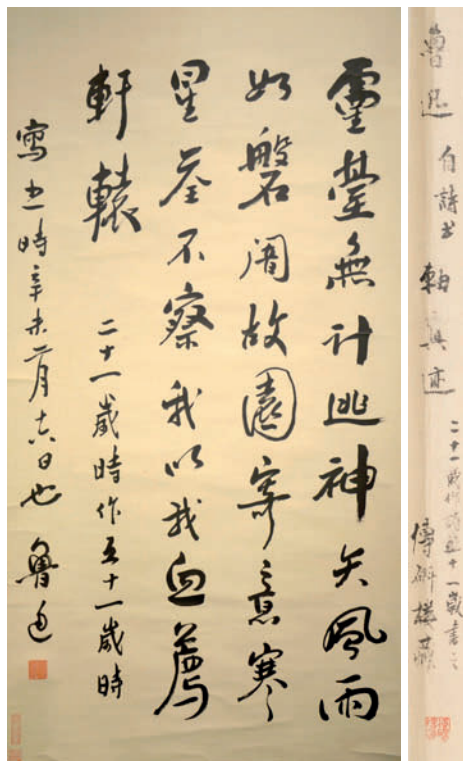 靈臺無計逃神矢風雨
如磐闇故園寄意寒
星荃不察我以我血薦
軒轅
二十一歲時作五十一歲時
寫之時辛未二月十六日也 魯迅
魯迅自詩書軸真迹
二十一歲作詩五十一歲書之